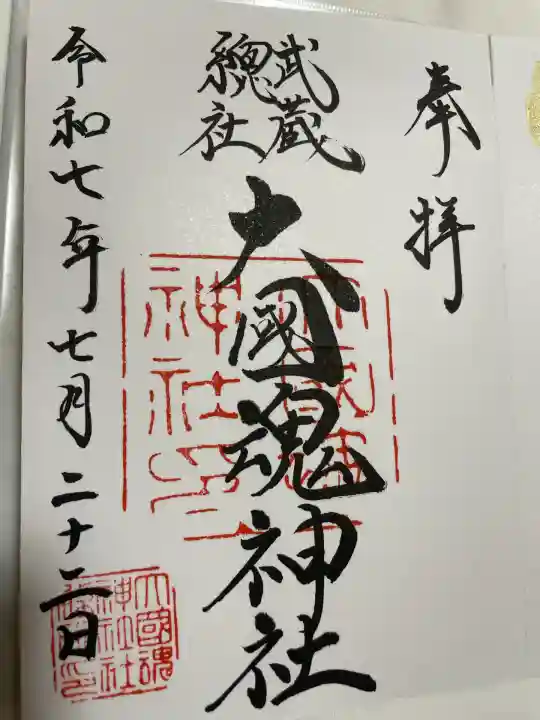 奉拝
武蔵
總社
大國魂神社
令和七年七月二十二日
大國魂
神社